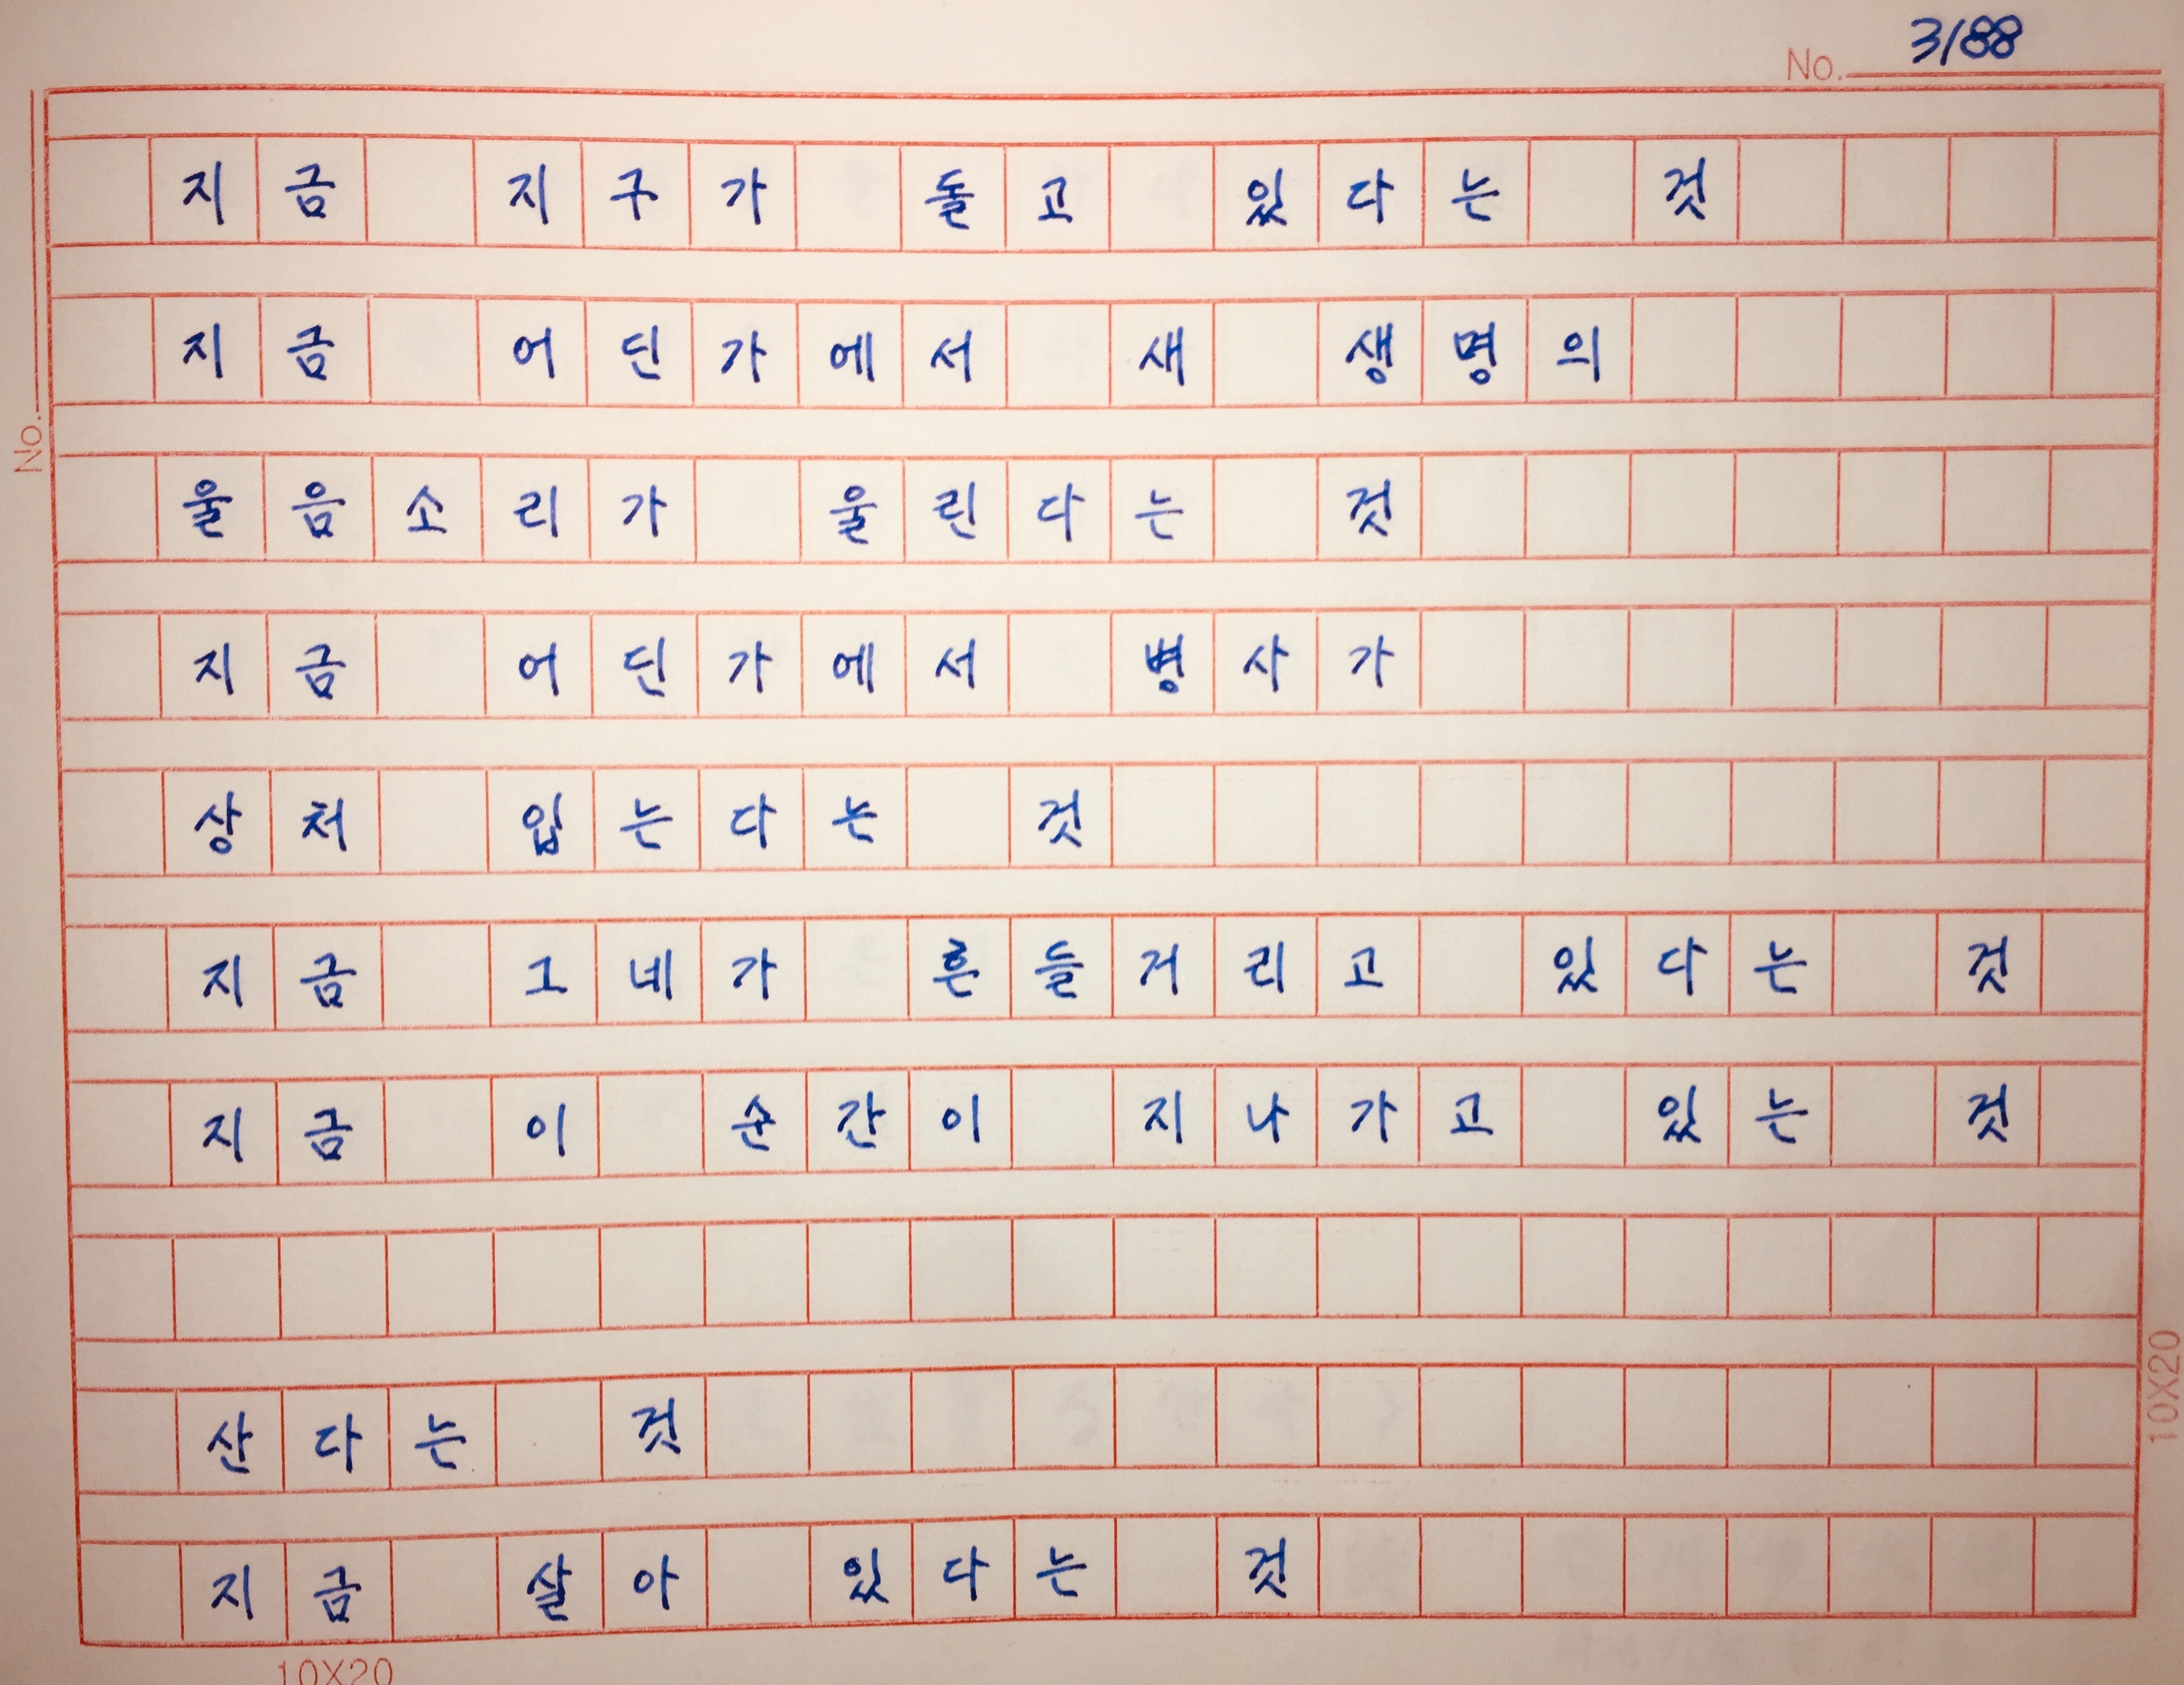 No. 3188
지금 지구가 돌고 있다는 것
지금 어딘가에서 새 생명의
울음소리가 울린다는 것
지금 어딘가에서 병사가
상처 입는다는 것
지금 그네가 흔들거리고 있다는 것
지금 이 순간이 지나가고 있는 것
산다는 것
지금 살아 있다는 것
No.
10X20
10X20